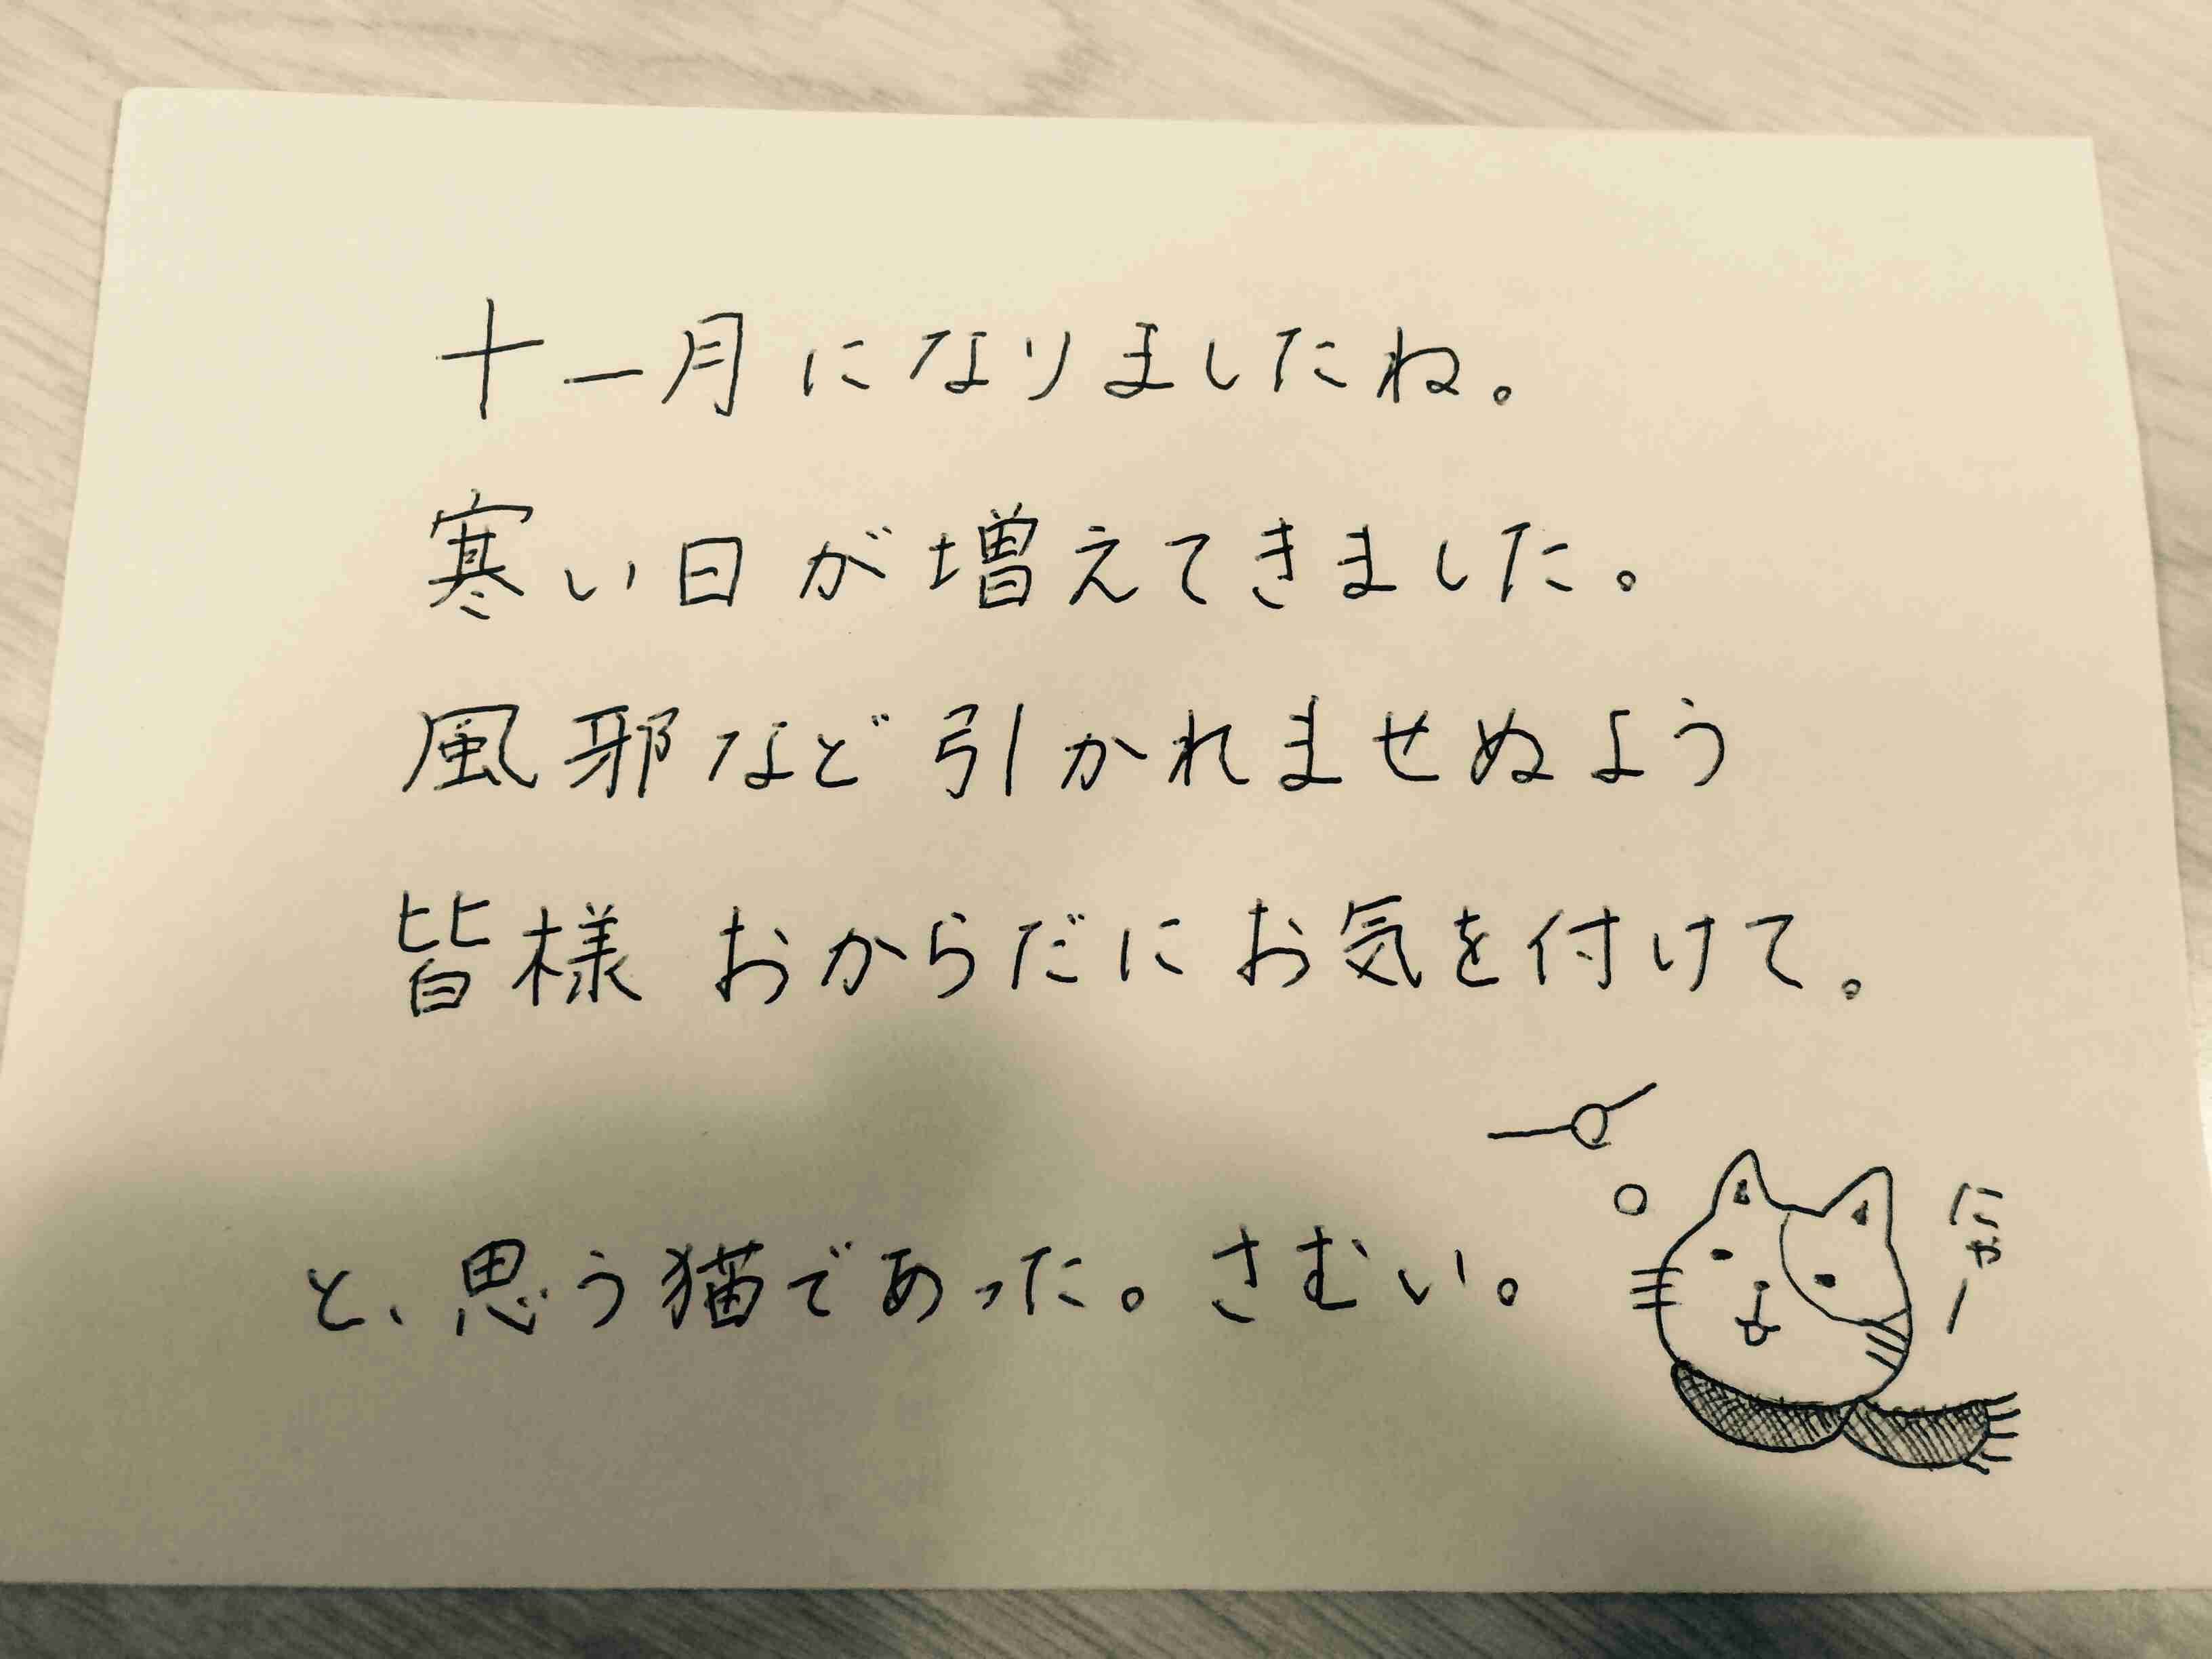 十一月になりましたね。
寒い日が増えてきました。
風邪など引かれませぬよう
皆様 おからだにお気を付けて。
と、思う猫であった。さむい。
にゃー